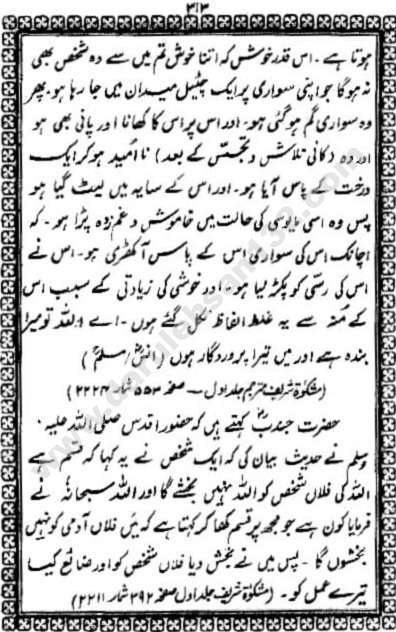 ۳۱۳
ہوتا ہے۔ اس قدر خوش کہ اتنا خوش تم میں سے وہ شخص بھی
نہ ہوگا جو اپنی سواری پر ایک چٹیل میدان میں جا رہا ہو۔ پھر
وہ سواری گم ہو گئی ہو۔ اور اس پر اس کا کھانا اور پانی بھی ہو
اور وہ (کافی تلاش و تجسس کے بعد) نا امید ہو کر ایک
درخت کے پاس آیا ہو۔ اور اس کے سایہ میں لیٹ گیا ہو
پس وہ اسی مایوسی کی حالت میں خاموش و غم زدہ پڑا ہو۔ کہ
اچانک اس کی سواری اس کے پاس آ کھڑی ہو۔ اس نے
اس کی رسّی کو پکڑ لیا ہو۔ اور خوشی کی زیادتی کے سبب اس
کے منہ سے یہ غلط الفاظ نکل گئے ہوں۔ اے اللہ تو میرا
بندہ ہے اور میں تیرا پروردگار ہوں (انسؓ/مسلمؒ)
(مشکوٰۃ شریف مترجم جلد اول – صفحہ ۵۵۳ شمار ۲۲۲۴)
حضرت جندبؓ کہتے ہیں کہ حضور اقدس صلی اللہ علیہ
وسلم نے حدیث بیان کی کہ ایک شخص نے یہ کہا کہ قسم ہے
اللہ کی فلاں شخص کو اللہ نہیں بخشے گا اور اللہ سبحانہٗ نے
فرمایا کون ہے جو مجھ پر قسم کھا کر کہتا ہے کہ میں فلاں آدمی کو نہیں
بخشوں گا۔ پس میں نے بخش دیا فلاں شخص کو اور ضائع کیا
تیرے عمل کو۔ (مشکوٰۃ شریف جلد اول صفحہ ۳۹۲ شمار ۲۲۱۱)